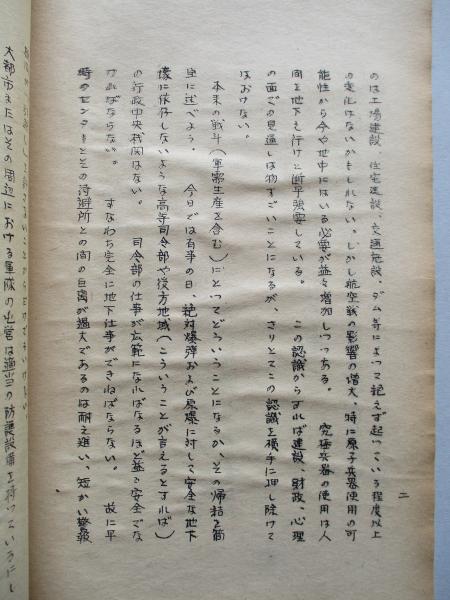 二
のは工場建設、住宅建設、交通施設、ダム等によって絶えず起っている程度以上
の変化はないかもしれない。しかし航空戦の影響の増大、特に原子兵器使用の可
能性から今や地中にはいる必要が益々増加しつつある。 究極兵器の使用は人
間を地下え行けと断乎強要している。 この認識からすれば建設、財政、心理
の面での見通しは物すごいことになるが、さりとてこの認識を横手に押し除けて
はおけない。
本来の戦斗(軍需生産を含む)にとってどういうことになるか、その帰結を簡
単に述べよう。 今日では有事の日、絶対爆弾および原爆に対して安全な地下
壕に依存しないような高等司令部や後方地域(こういうことが言えるとすれば)
の行政中央機関はない。 司令部の仕事が広範になればなるほど益々安全でな
ければならない。 すなわち完全に地下仕事ができねばならない。 故に平
時のセンターとその待避所との間の距離が過大であるのは耐え難い、短かい警報
大都市またはその周辺における軍隊の出営は適当の防護設備を持っているにし